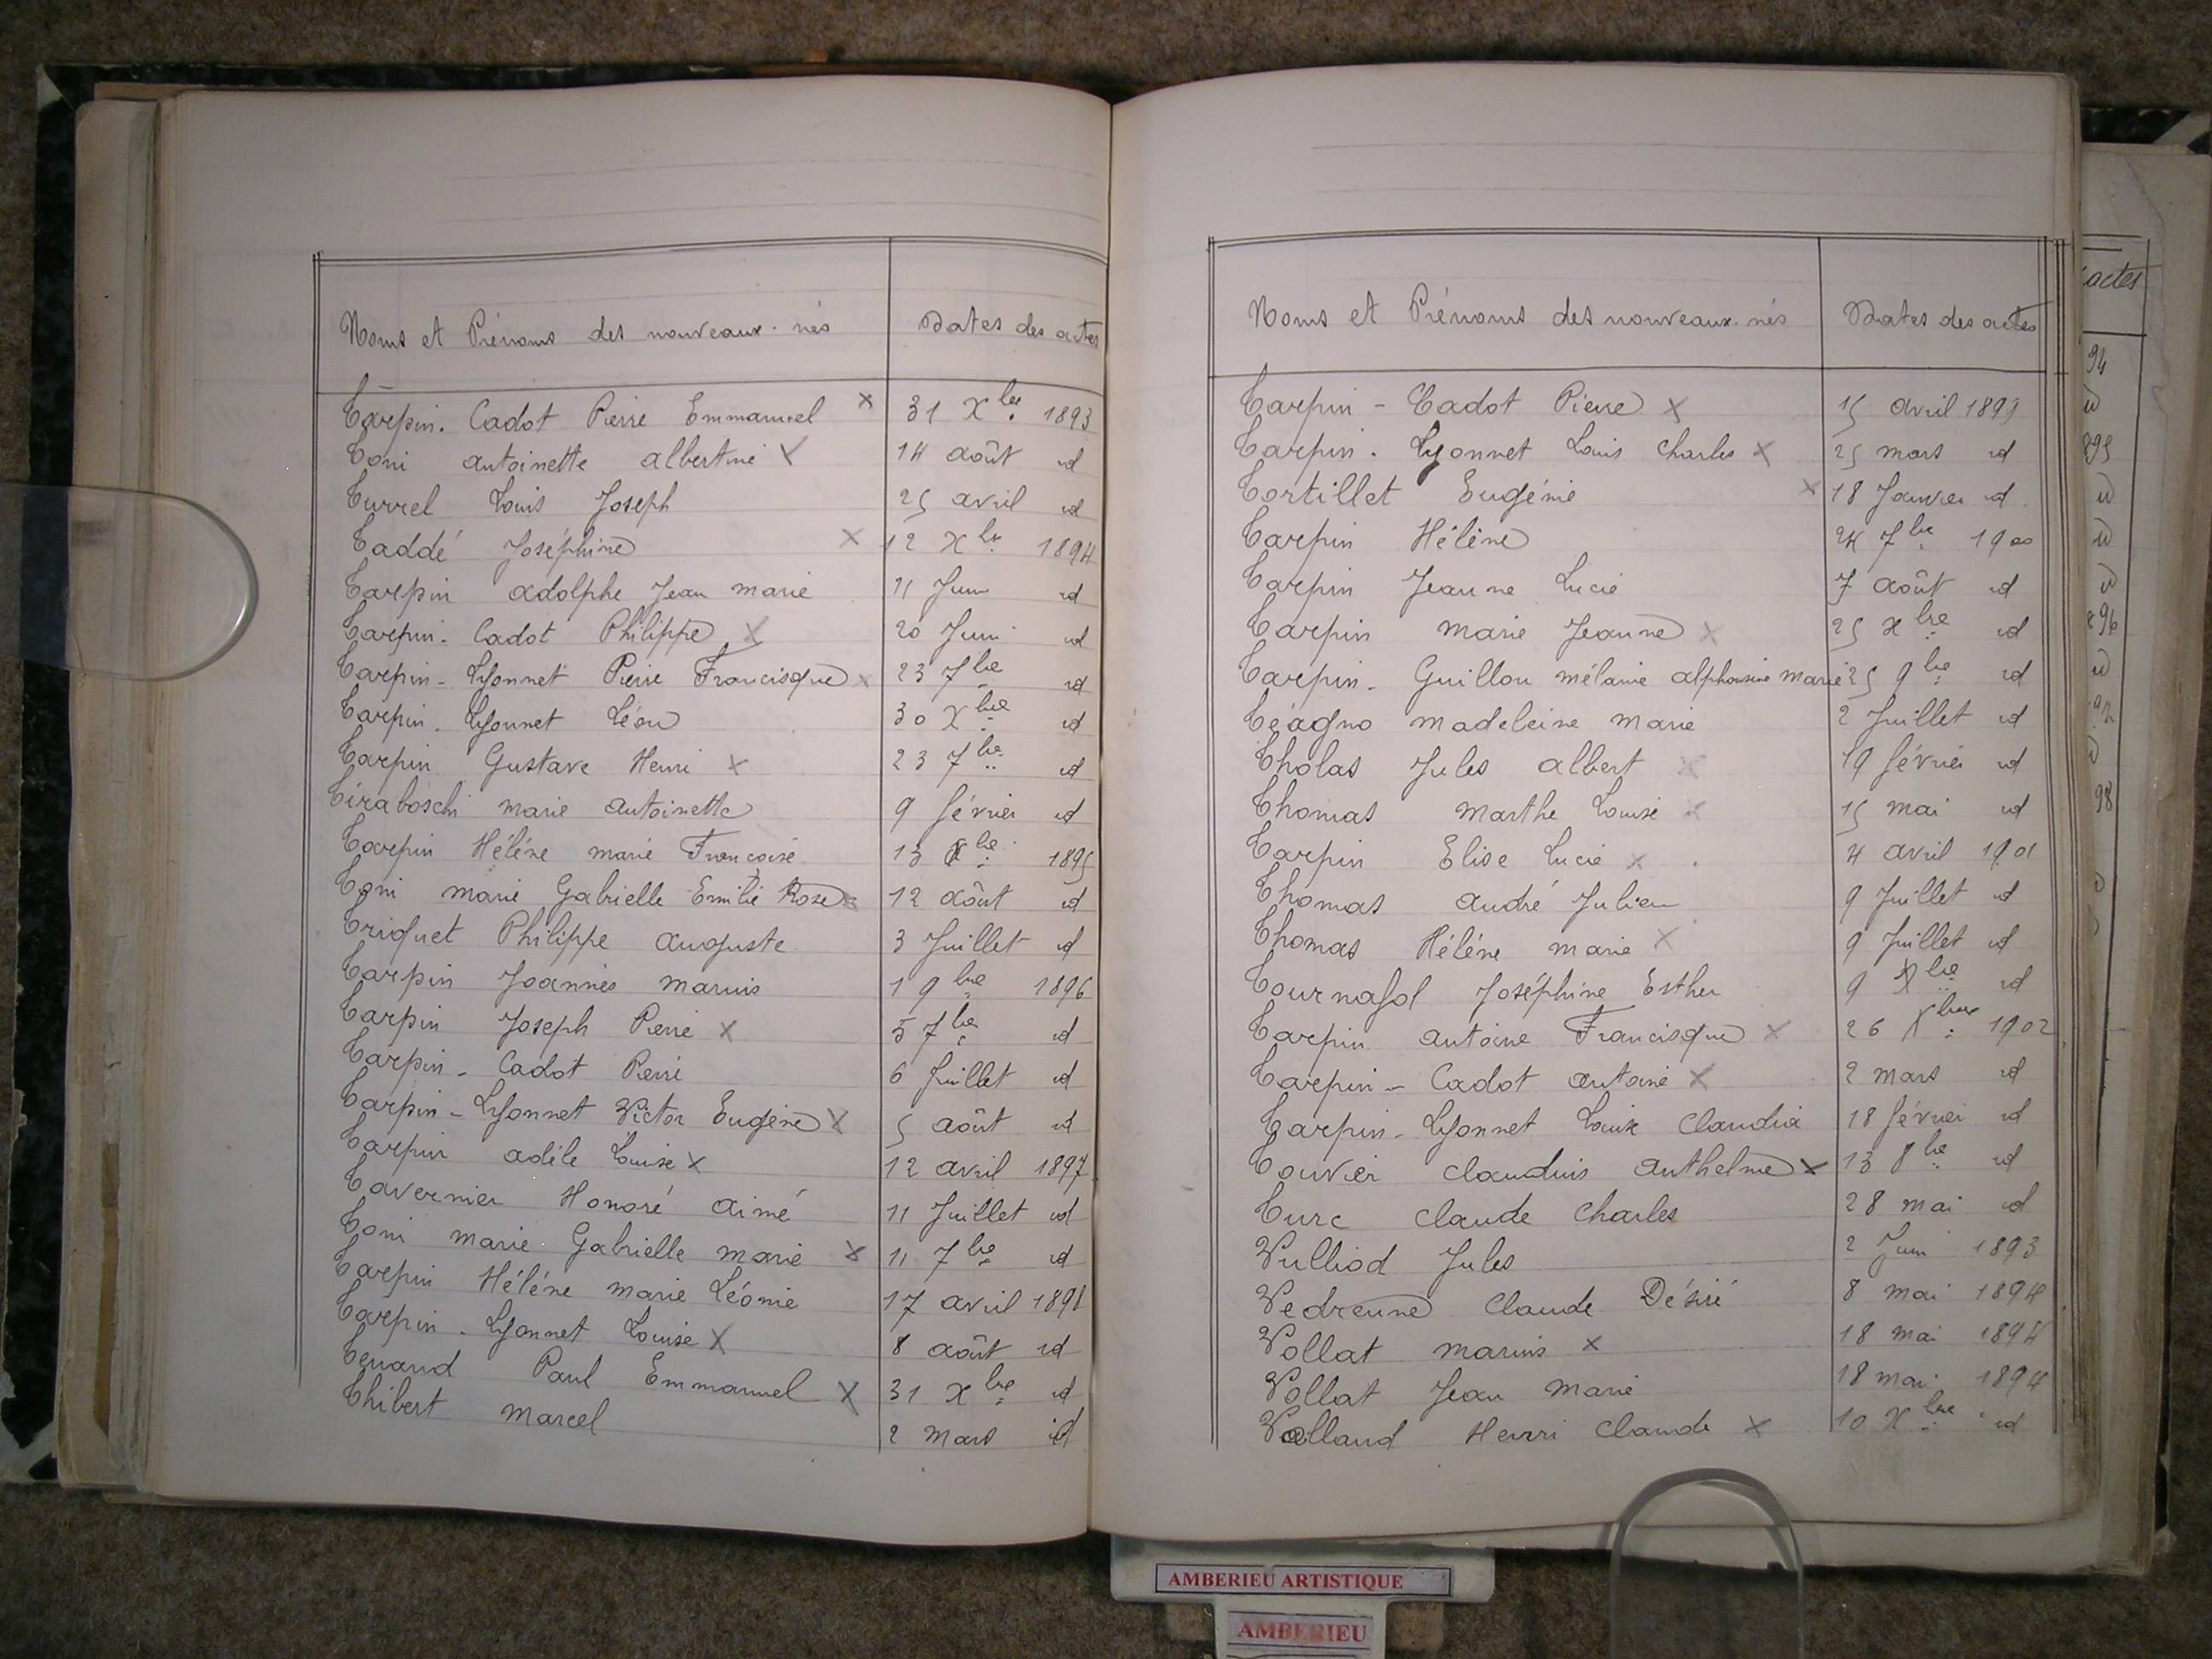 Noms et Prénoms des nouveaux-nés Dates des actes
Tarpin-Cadot Pierre Emmanuel x 31 Xbre 1893
Toni antoinette albertine x 14 août id
Turrel Louis Joseph 25 avril id
Taddé Joséphine x 12 Xbre 1894
Tarpin adolphe Jean marie 11 Juin id
Tarpin-Cadot Philippe x 20 Juin id
Tarpin-Lyonnet Pierre Francisque x 23 7bre id
Tarpin-Lyonnet Léon 30 Xbre id
Tarpin Gustave Henri x 23 7bre id
Tiraboschi marie antoinette 9 février id
Tarpin Hélène marie Françoise 13 Xbre 1895
Toni marie Gabrielle Emilie Rose x 12 août id
Triquet Philippe auguste 3 Juillet id
Tarpin Joannès marius 1 9bre 1896
Tarpin Joseph Pierre x 5 7bre id
Tarpin-Cadot Pierre 6 Juillet id
Tarpin-Lyonnet Victor Eugène x 5 août id
Tarpin adèle Louise x 12 avril 1897
Tavernier Honoré aimé 11 Juillet id
Toni marie Gabrielle marie x 11 7bre id
Tarpin Hélène marie Léonie 17 avril 1898
Tarpin-Lyonnet Louise x 8 août id
Tenand Paul Emmanuel x 31 Xbre id
Thibert marcel 2 mars id
Noms et Prénoms des nouveaux-nés Dates des actes
Tarpin-Cadot Pierre x 15 avril 1899
Tarpin-Lyonnet Louis Charles x 25 mars id
Tortillet Eugénie x 18 Janvier id
Tarpin Hélène 24 7bre 1900
Tarpin Jeanne Lucie 7 août id
Tarpin marie Jeanne x 25 xbre id
Tarpin-Guillon mélanie alphonsine marie 25 9bre id
Téagno madeleine marie 2 Juillet id
Tholas Jules albert x 19 février id
Thomas marthe Louise x 15 mai id
Tarpin Elise Lucie x 4 avril 1901
Thomas andré Julien 9 Juillet id
Thomas Hélène marie x 9 Juillet id
Tournafol Joséphine Esther 9 Xbre id
Tarpin antoine Francisque x 26 Xbre 1902
Tarpin-Cadot antoine x 2 mars id
Tarpin-Lyonnet Louise Claudia 18 février id
Touvier Claudius anthelme x 13 8bre id
Turc Claude Charles 28 mai id
Vulliod Jules 2 Juin 1893
Vedrenne Claude Désiré 8 mai 1894
Vollat marius x 18 mai 1894
Vollat Jean marie 18 mai 1894
Volland Henri Claude x 10 Xbre id
actes
94
id
895
id
id
id
896
id
id
98
AMBERIEU ARTISTIQUE
AMBERIEU